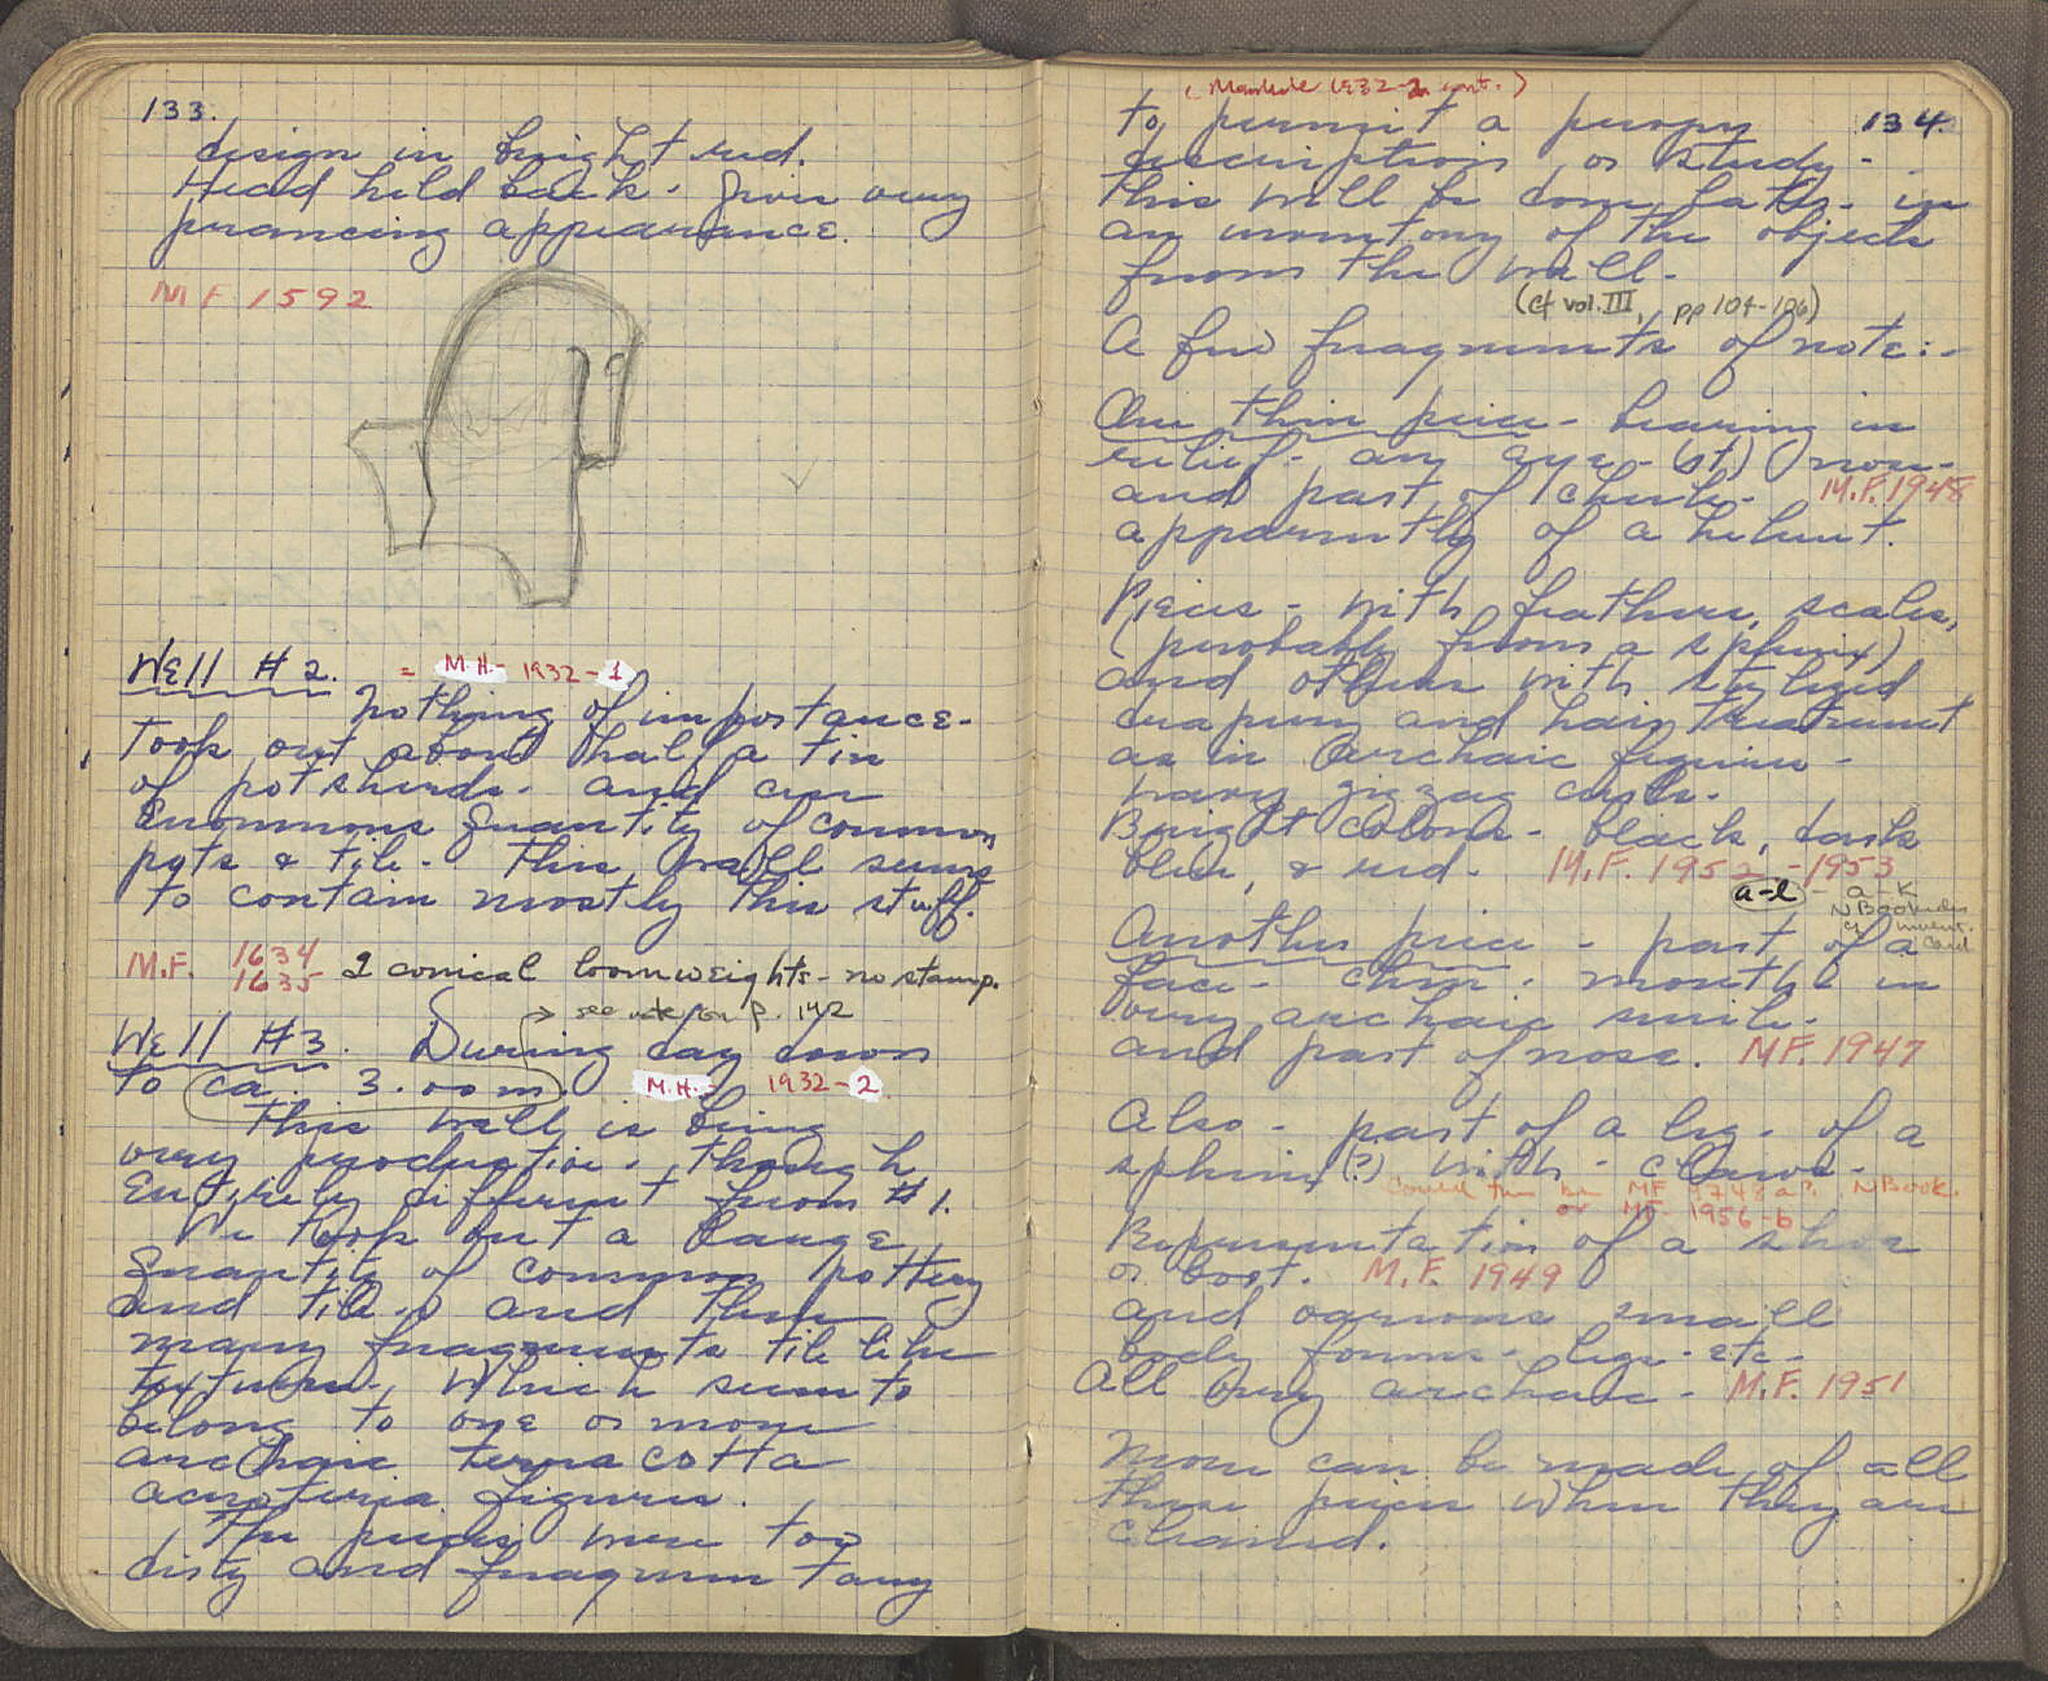 133.
design in bright red.
Head held back - gives very
prancing appearance.
MF 1592
Well #2. = M.H.- 1932-1
Nothing of importance -
Took out about half a tin
of potsherds - and an
Enormous quantity of common
pots & tile - This well seems
to contain mostly this stuff.
M.F. 1634
1635 2 conical loomweights - no stamp.
→ see note on p. 142
Well #3. During day down
to ca. 3.00 m. M.H.- 1932-2
This well is being
very productive - though
Entirely different from #1.
We took out a large
quantity of common pottery
and tile - and then
many fragments tile like
texture, which seem to
belong to one or more
archaic terra cotta
acroteria figures.
The pieces were too
dirty and fragmentary
(Manhole 1932-2 cont.)
134.
to permit a proper
description or study -
this will be done later - in
an inventory of the objects
from the well -
(cf vol. III, pp 104-106)
A few fragments of note: -
One thin piece - bearing in
relief - an eye - (rt) nose -
and part of cheek - M.F. 1948
apparently of a helmet.
Pieces - with feathers, scales,
(probably from a sphinx)
and others with stylized
drapery and hair treatment
as in Archaic figures -
wavy zigzag curls -
Bright colors - black, dark
blue, & red - M.F. 1952 - 1953
a-l - a-k
N Book
invent.
card
Another piece - part of a
face - chin - mouth in
very archaic smile -
and part of nose. MF. 1947
Also - part of a leg - of a
sphinx (?) with - claws -
Could this be MF 3748a? N Book.
or MF. 1956-b
Representation of a shoe
or boot. M.F. 1949
and various small
body forms - legs - etc -
All very archaic - M.F. 1951
More can be made of all
these pieces when they are
cleaned.